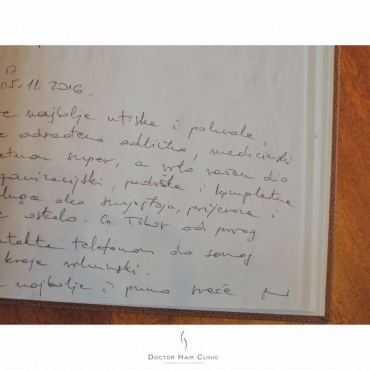 05.11.2016.
najbolje utiske i pohvale,
odrađeno odlično, medicinski
super, a vrlo važan dio
organizacijski, podrška i kompletna
oko smještaja, prijevoza i
ostalo. G. Tibor od prvog
kontakta telefonom do samog
kraja vrhunski.
najbolje i puno sreće
DOCTOR HAIR CLINIC